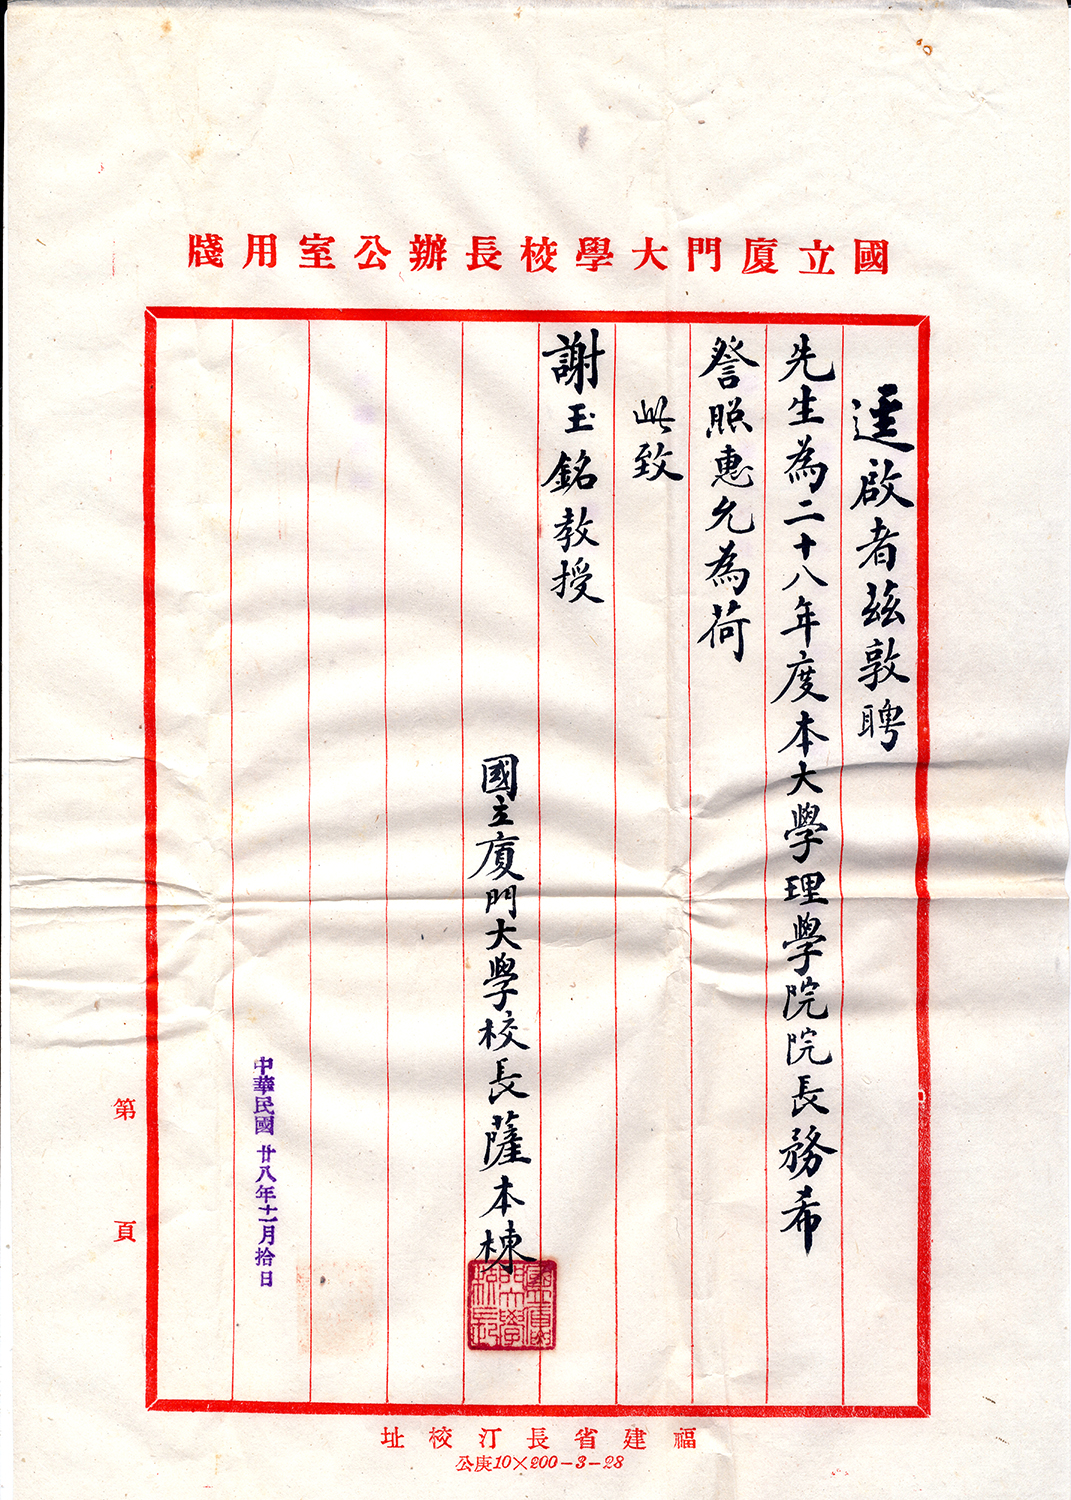 國立廈門大學校長辦公室用牋
逕啟者茲敦聘
先生為二十八年度本大學理學院院長務希
詧照惠允為荷
此致
謝玉銘教授
國立廈門大學校長薩本棟
國立廈門大學校長
中華民國廿八年十一月拾日
第 頁
福建省長汀校址
公庚10×200-3-28